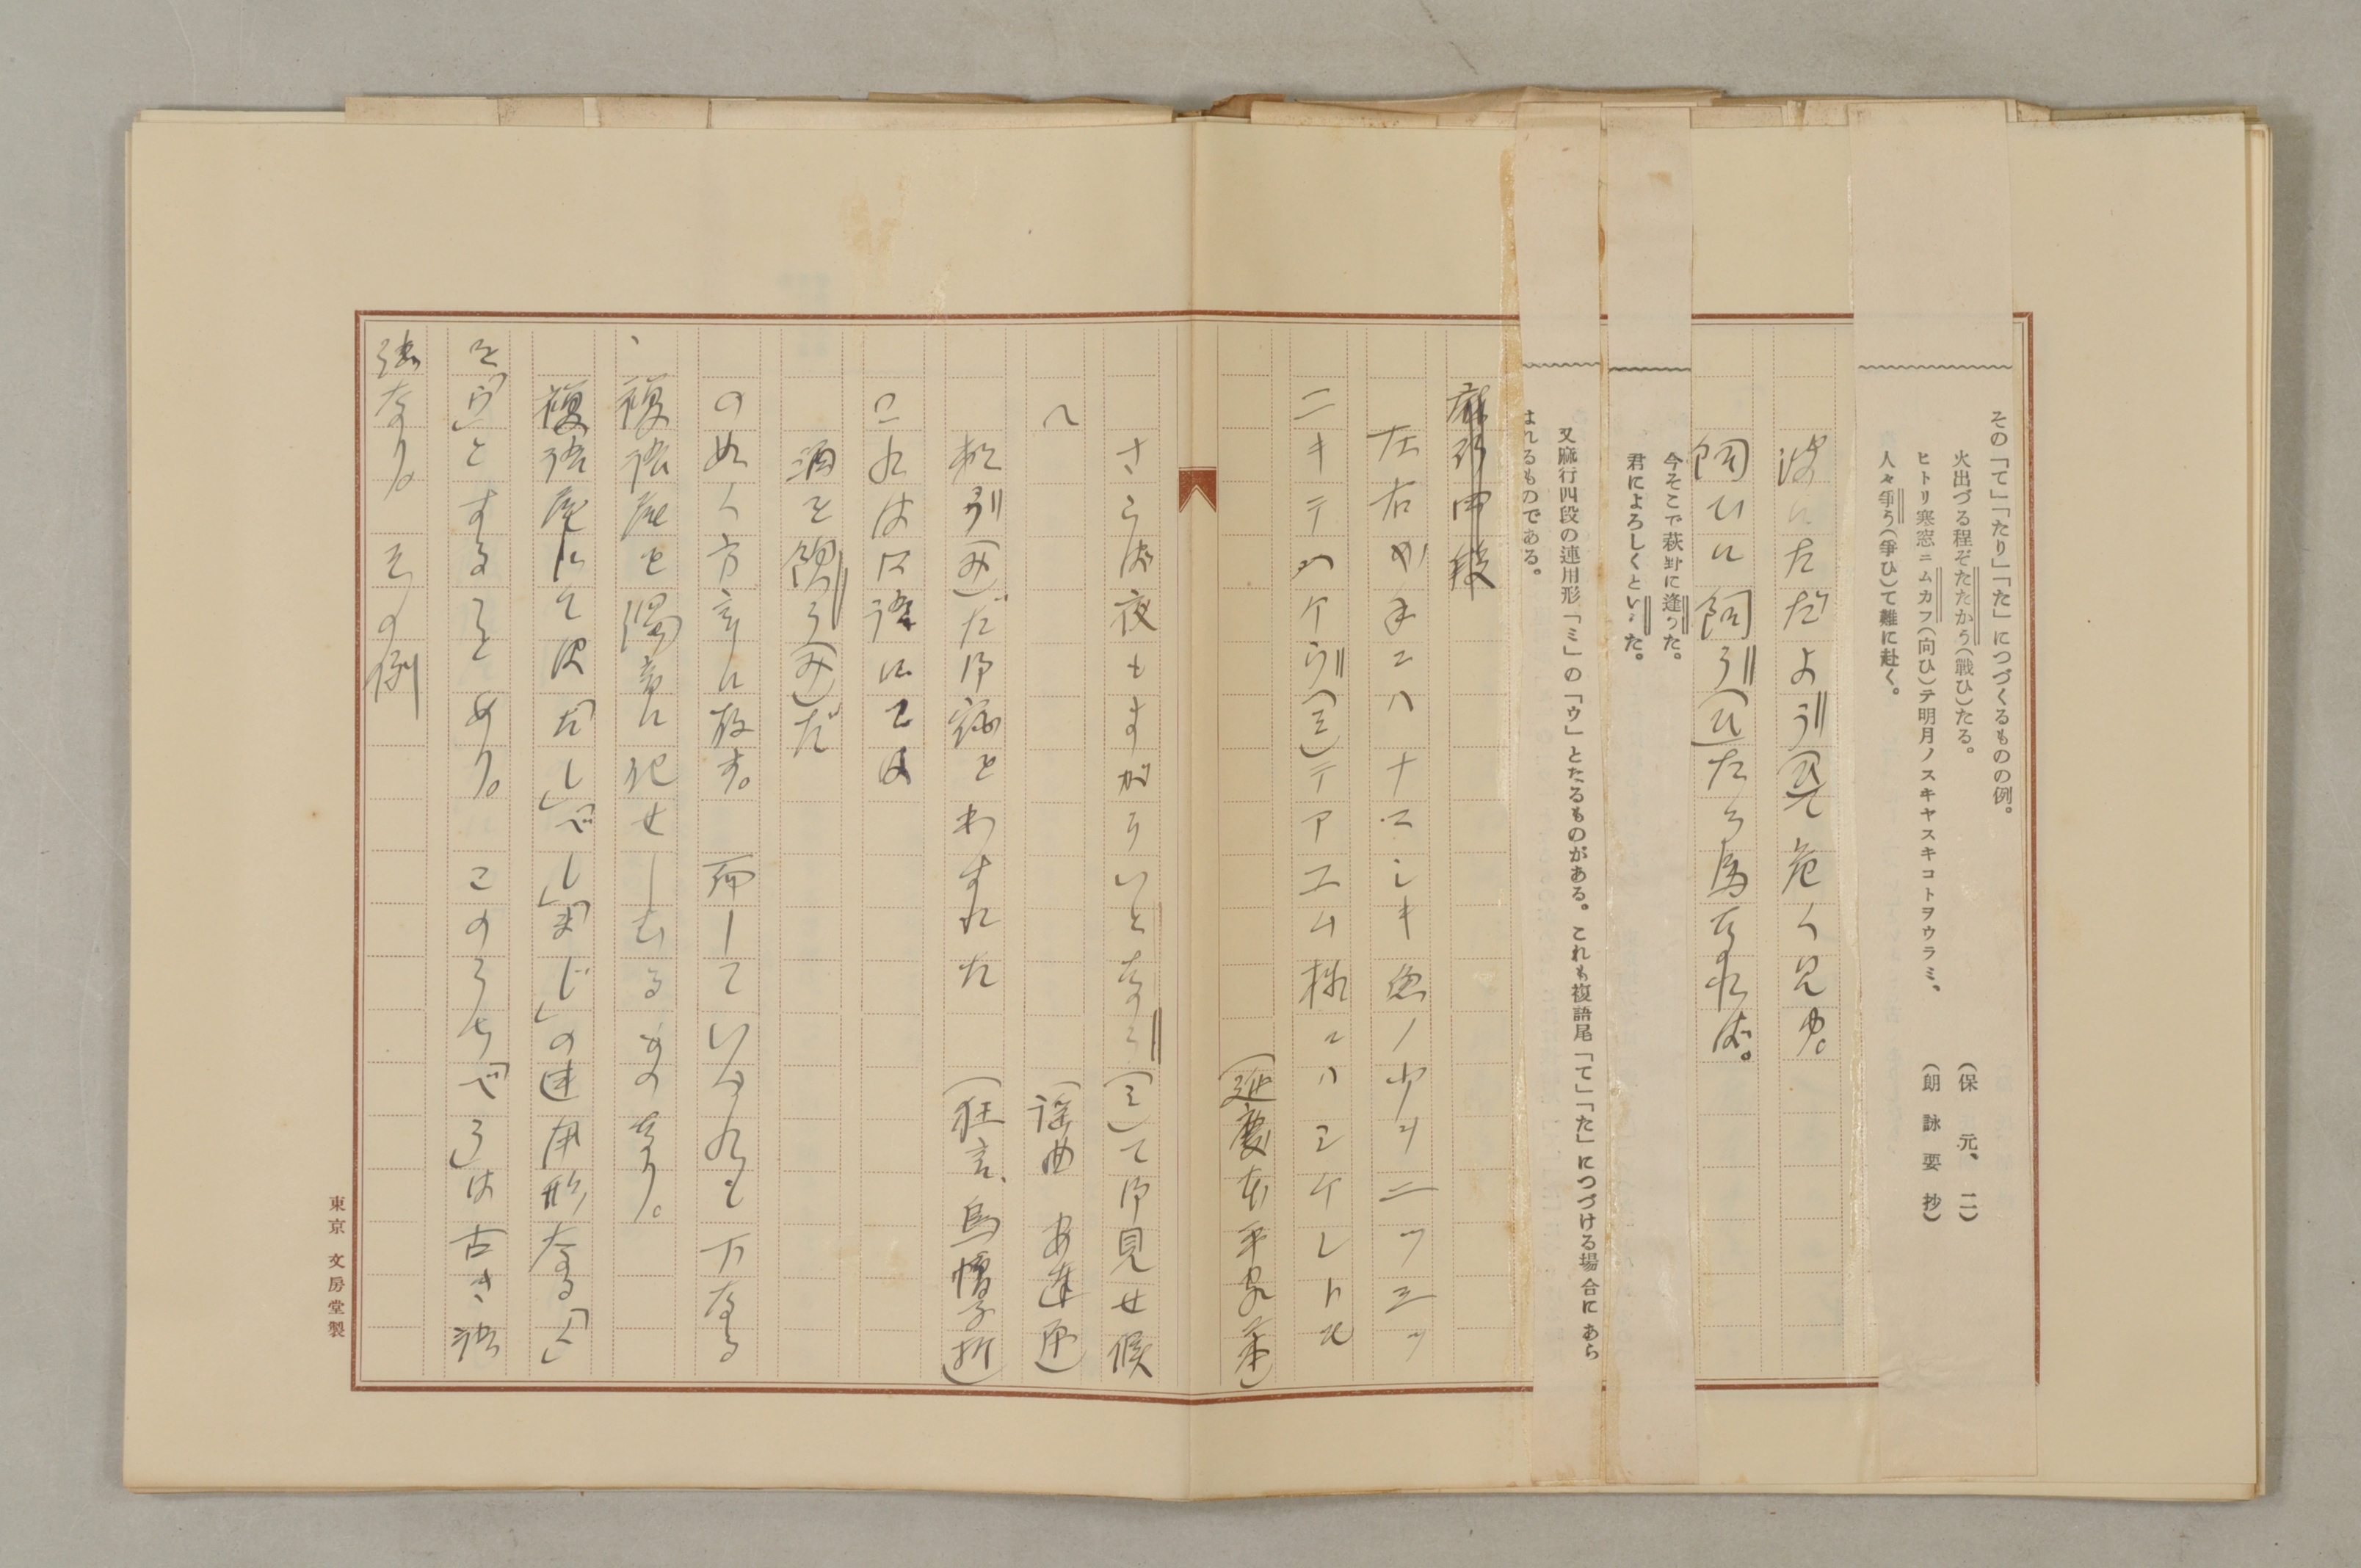 その「て」「たり」「た」につづくるものの例。
火出づる程ぞたたかう(戰ひ)たる。 (保元、二)
ヒトリ寒窓ニムカフ(向ひ)テ明月ノスキヤスキコトヲウラミ、 (朗詠要抄)
人々爭う(爭ひ)て難に赴く。
波にただよう(ひ)て危く見ゆ。
飼ひに飼う(ひ)たる馬なれば。
今そこで萩野に逢うた。
君によろしくというた。
又麻行四段の連用形「ミ」の「ウ」とたるものがある。これも複語尾「て」「た」につづける場合にあら
はれるものである。
麻行四段
左右か手ニハナマシキ魚ノ少キニツミツ
ニキテハケウ(ミ)テアエム様ニハミケレトモ
(延慶本平家 )
さらば夜もすがらいとなう(ミ)て御見せ候
へ (謡曲 安達原)
松引(み)だ御祝とわすれた (狂言、烏帽子折)
これは口語にては
酒を飲う(み)だ
のめく方言に存す。而していづれも下なる
複語尾を濁音に化せしむるものなり。
複語尾にては「たし」「べし」「まじ」の連用形なる「く」
を「う」とすることあり。このうち「べう」は古き語
法なり。その例
東京 文房堂製